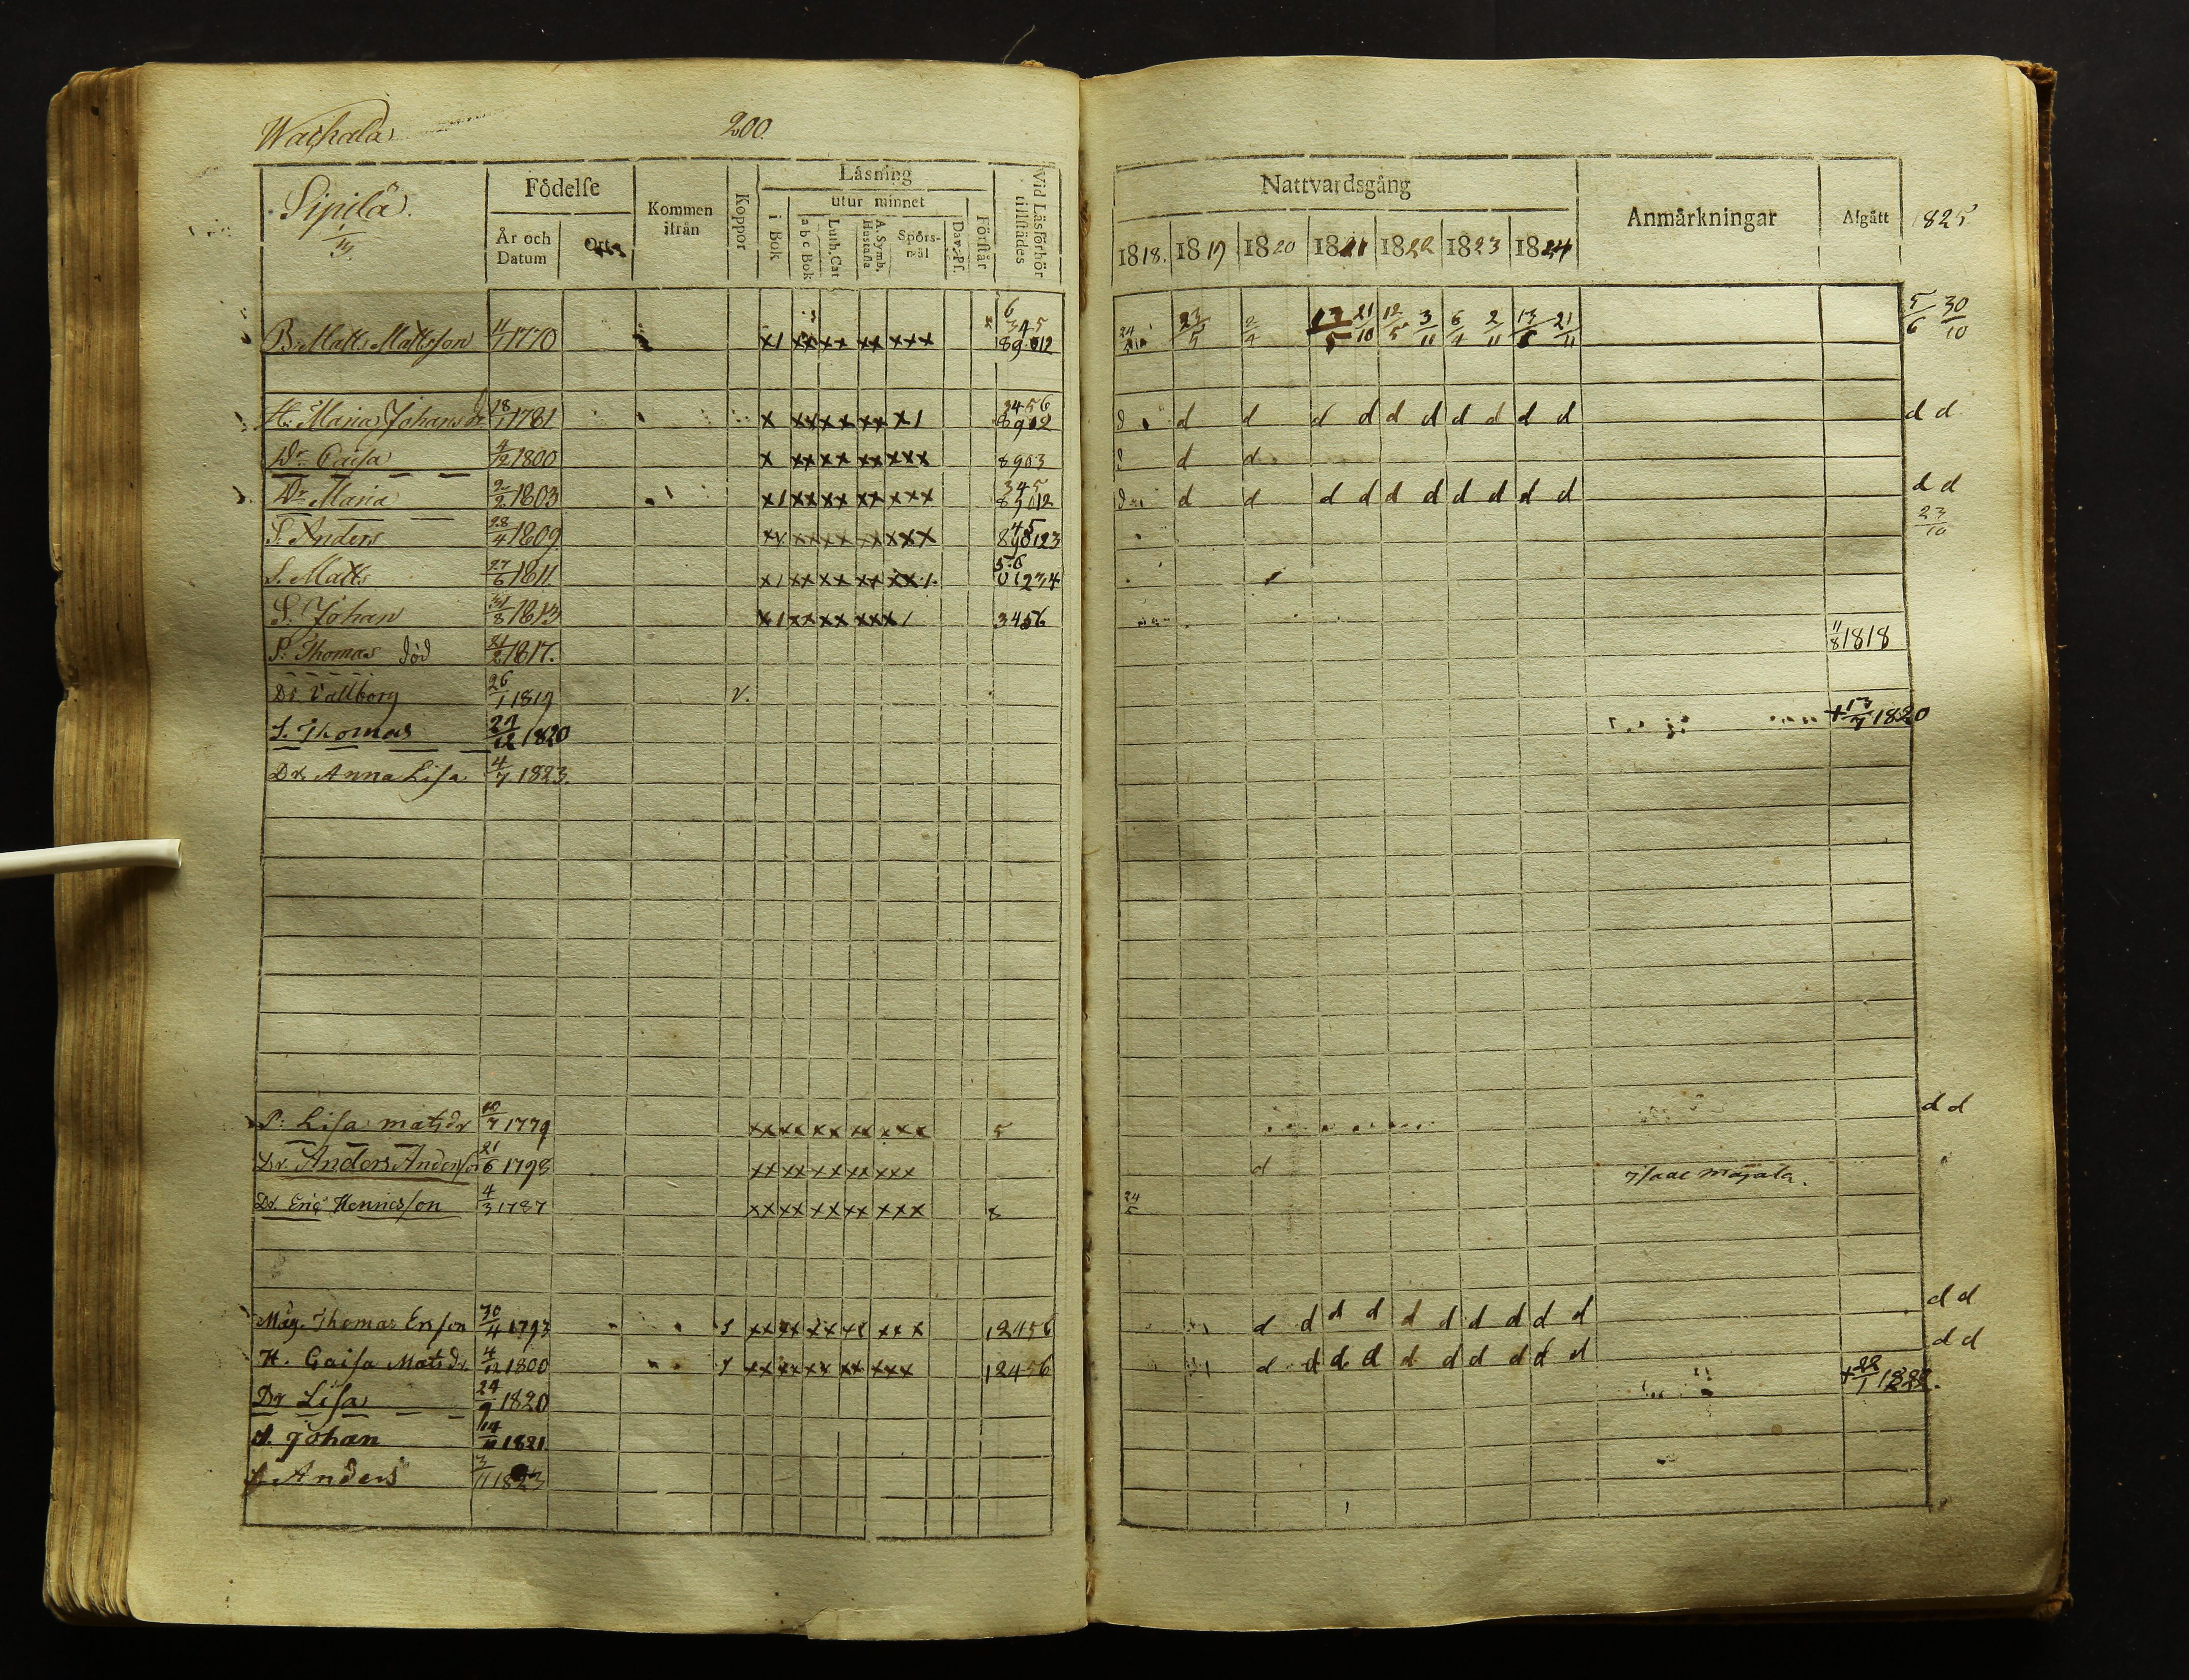 Wachala 200.
Sipilä. Födelſe Kommen ifrån Koppor Läsning Vid Läsförhör tillſtädes
År och Datum Ort i Bok utur minnet Förſtår
a b c Bok Luth. Cat A. Symb. Huſtafla Spörs-mål Dav. Pſ.
Nattvardsgång Anmärkningar Afgått 1825
1818. 1819 1820 1821 1822 1823 1824
B. Matts Mattsson 11/1 1770 x1 xx xx xx xxx 6 345 89012 23/5 13/5 21/10 12/5 3/11 6/4 2/11 13/6 21/11 5/6 30/10
H. Maria Johansdr 18/1 1781 x xx xx xx x1 3456 8902 d d d d d d d d d d d d
Dr. Caisa 4/12 1800 x xx xx xx xxx 8903 d d
Dr Maria 2/2 1803 x1 xx xx xx xxx 345 89012 d d d d d d d d d d d d
S. Anders 28/4 1809 xv xx xx xx xxx 45 890123 23/10
S. Matts 27/6 1811 x1 xx xx xx xx1. 56 01234
S. Johan 31/8 1813 x1 xx xx xx x1 3456
S. Thomas död 21/2 1817. 11/8 1818
Dr. Vallborg 26/1 1819 v. + 13/7 1820
S. Thomas 27/12 1820
Dr. Anna Lisa 4/7 1823.
P: Lisa matsdr 10/7 1779 xx xx xx xx xxx 5 d d
Dr. Anders Andersson 21/6 1798 xx xx xx xx xxx d Isaac
Dr. Eric Henricsson 4/3 1787 xx xx xx xx xxx 8
Måg. Thomas Ersson 30/4 1793 s xx xx xx xx xxx 12456 d d d d d d d d d d d d
H. Caisa Matsdr. 4/12 1800 s xx xx xx xx xxx 12456 d d d d d d d d d d d d
Dr Lisa 24/9 1820 + 22/1 1822.
S. Johan 14/11 1821.
S. Anders 3/11 1823